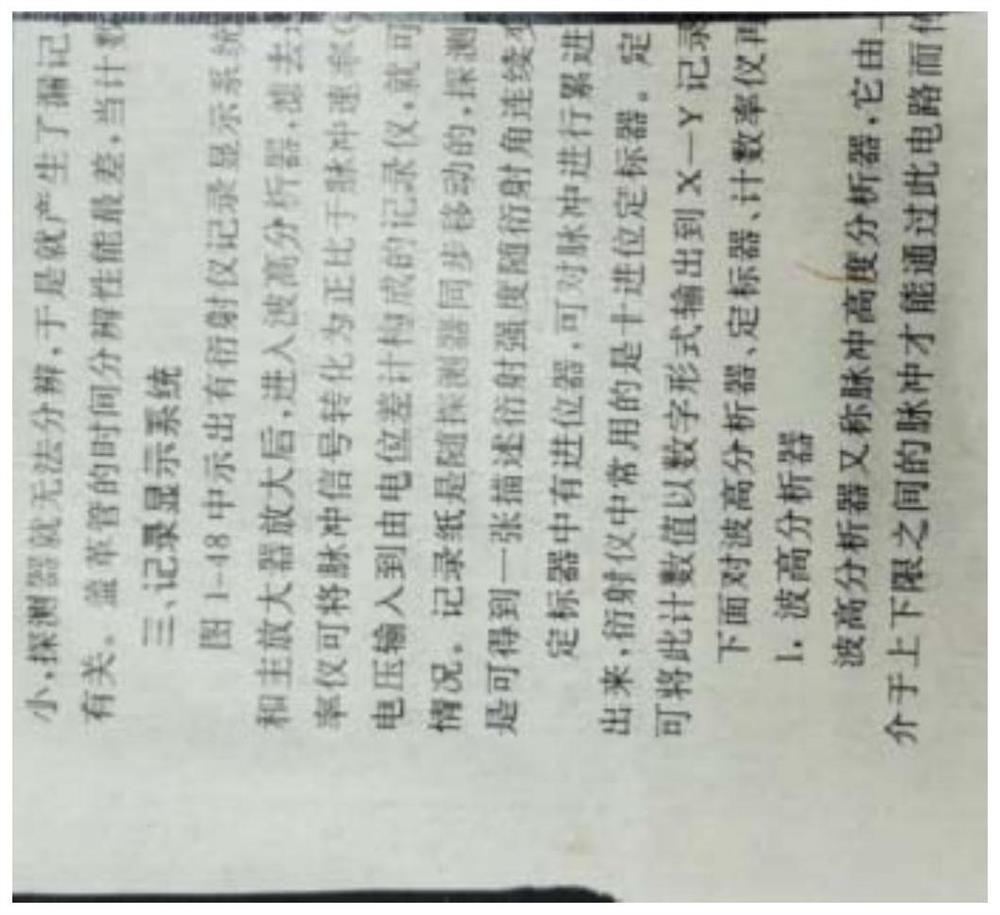 小,探测器就无法分辨,于是就产生了漏记
有关。盖革管的时间分辨性能最差,当计数
三、记录显示系统
图 1-48 中示出有衍射仪记录显示系统
和主放大器放大后,进入波高分析器,滤去
率仪可将脉冲信号转化为正比于脉冲速率(
电压输入到由电位差计构成的记录仪,就可
情况。记录纸是随探测器同步移动的,探测
是可得到一张描述衍射强度随衍射角连续变
定标器中有进位器,可对脉冲进行累进
出来,衍射仪中常用的是十进位定标器。定
可将此计数值以数字形式输出到 X—Y 记录
下面对波高分析器、定标器、计数率仪再
1. 波高分析器
波高分析器又称脉冲高度分析器,它由上
介于上下限之间的脉冲才能通过此电路而传